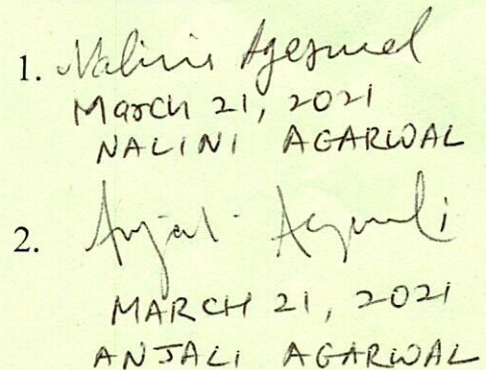 1. Nalini Agarwal
March 21, 2021
NALINI AGARWAL
2. Anjali Agarwal
MARCH 21, 2021
ANJALI AGARWAL